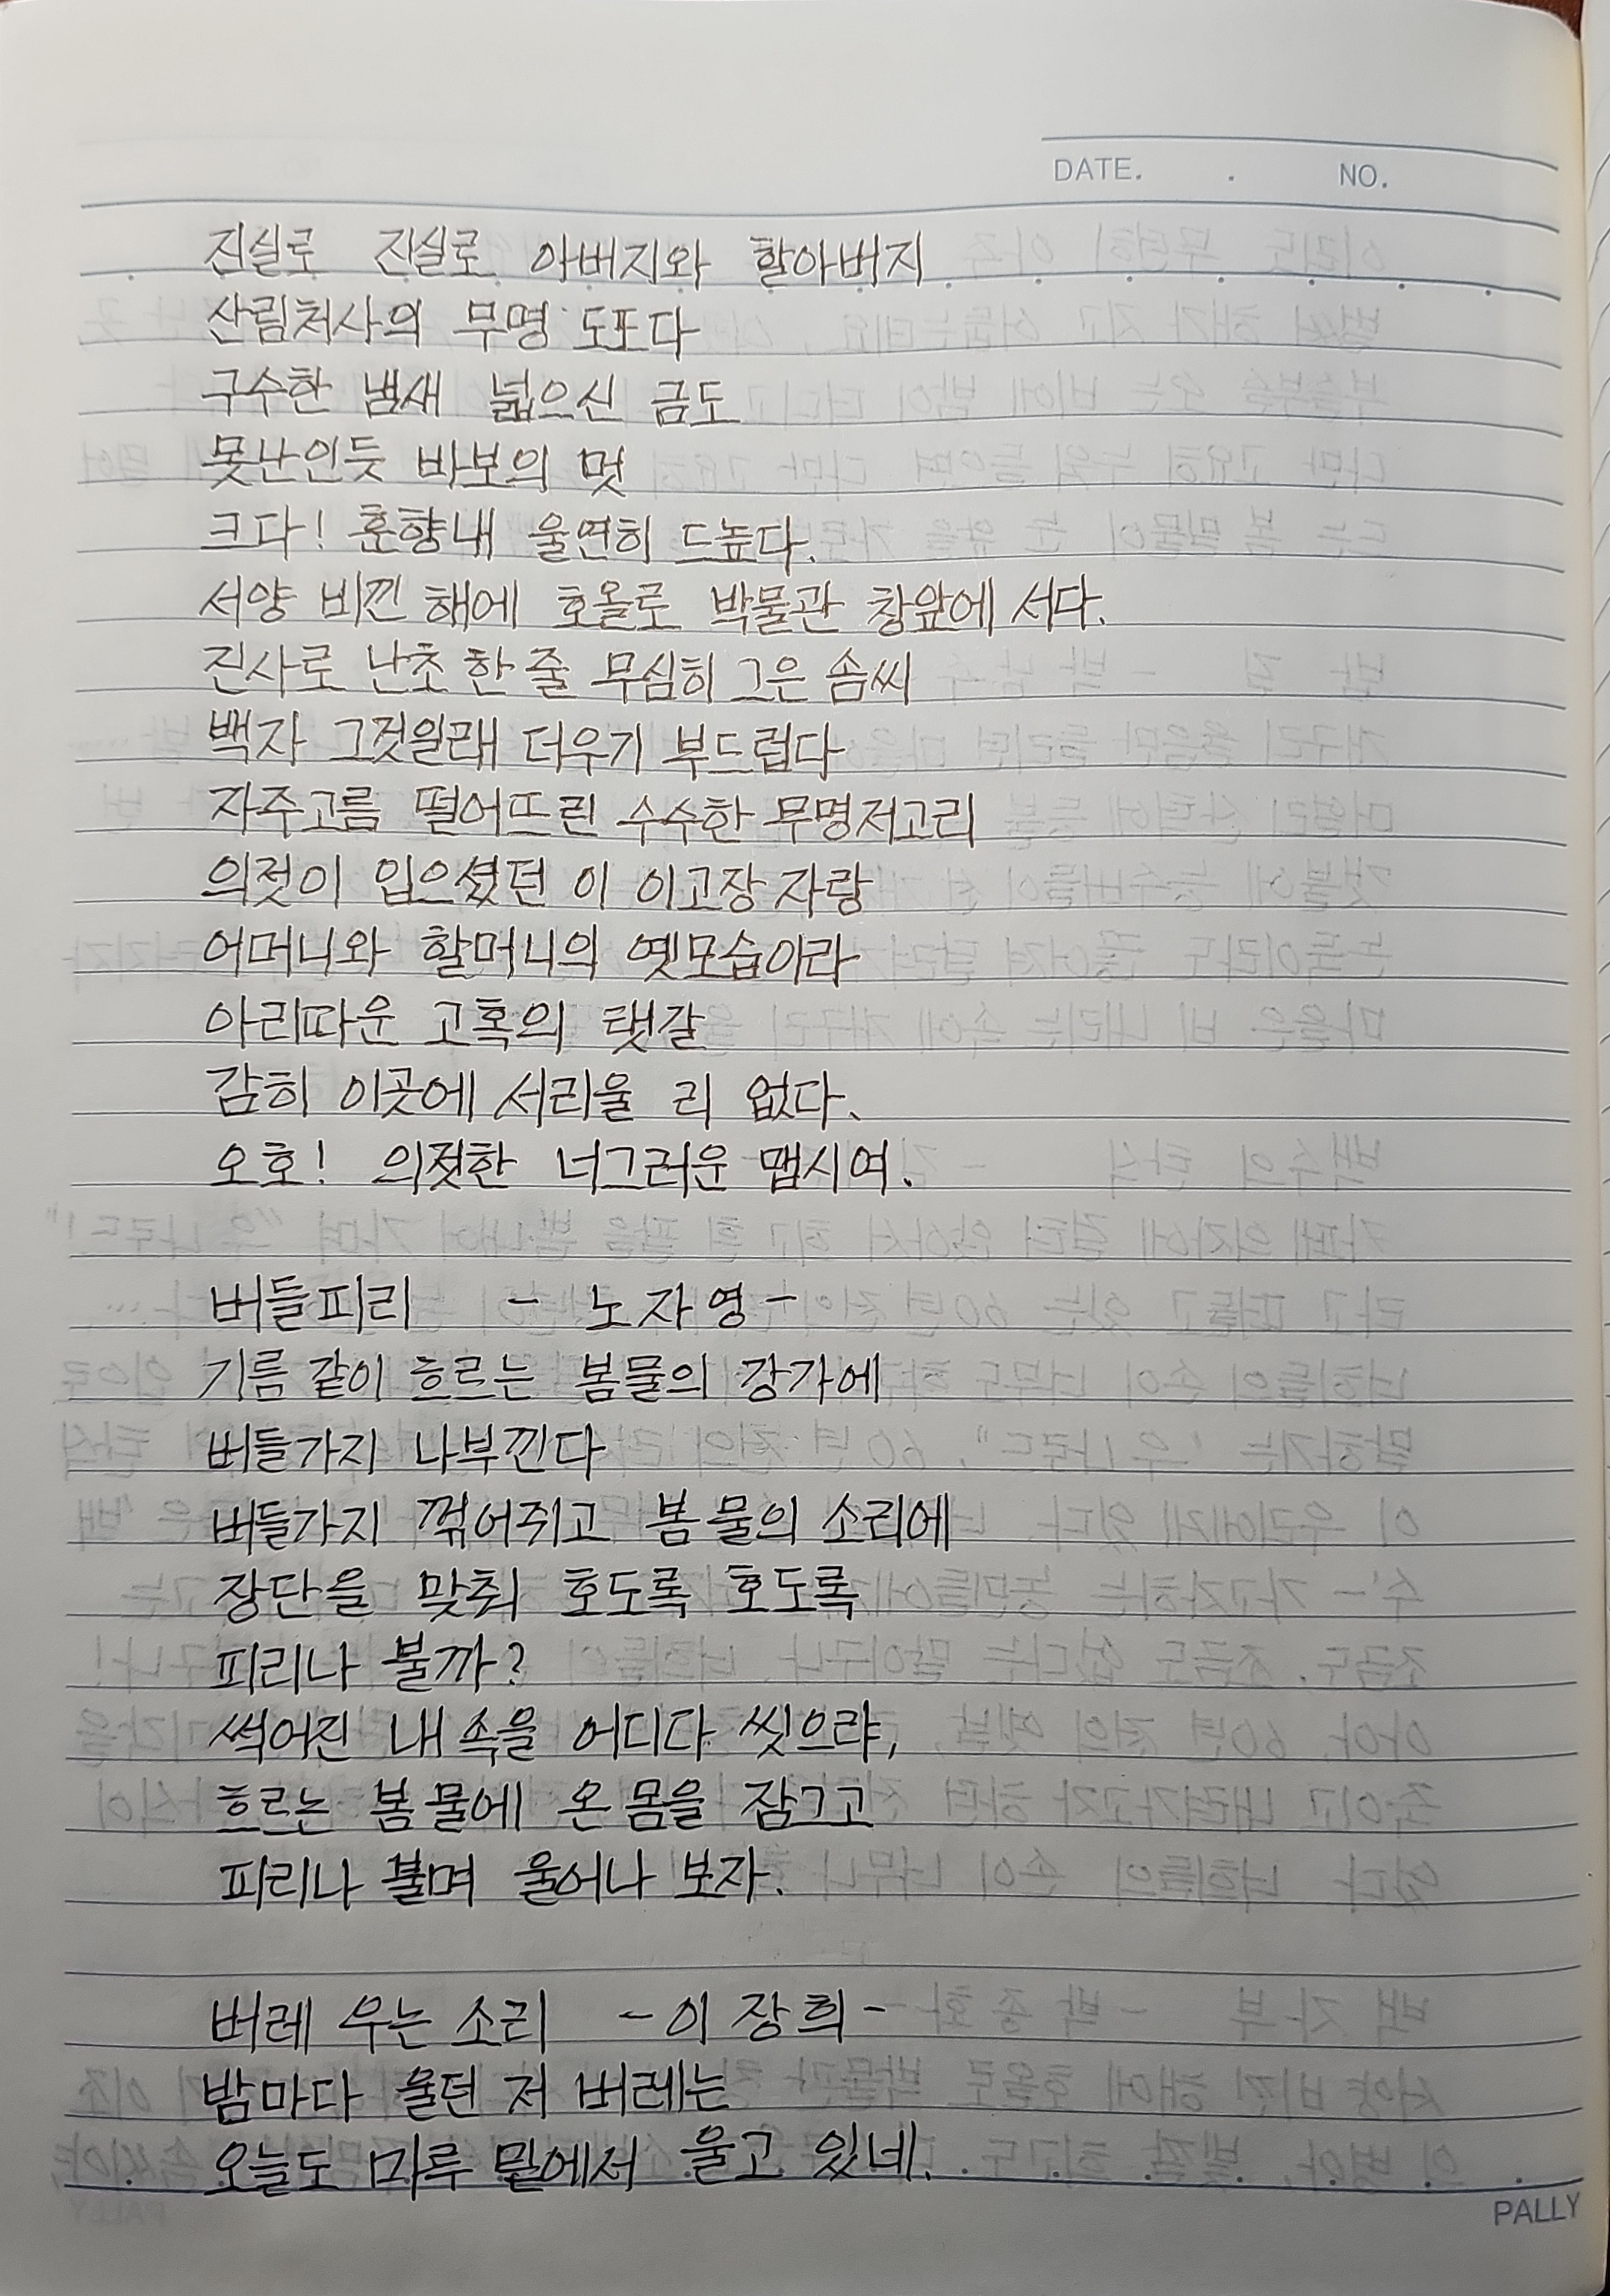 DATE. . NO.
진실로 진실로 아버지와 할아버지
산림처사의 무명 도포다
구수한 냄새 넓으신 금도
못난인듯 바보의 멋
크다! 훈향내 울연히 드높다.
서양 비낀 해에 호올로 박물관 창앞에 서다.
진사로 난초 한 줄 무심히 그은 솜씨
백자 그것일래 더우기 부드럽다
자주고름 떨어뜨린 수수한 무명저고리
의젓이 입으셨던 이 이고장 자랑
어머니와 할머니의 옛모습이라
아리따운 고혹의 탯갈
감히 이곳에 서리울 리 없다.
오호! 의젓한 너그러운 맵시여.
버들피리 - 노자영-
기름 같이 흐르는 봄물의 강가에
버들가지 나부낀다
버들가지 꺾어쥐고 봄물의 소리에
장단을 맞춰 호도록 호도록
피리나 불까?
썩어진 내 속을 어디다 씻으랴,
흐르는 봄물에 온몸을 잠그고
피리나 불며 울어나 보자.
버레 우는 소리 -이장희-
밤마다 울던 저 버레는
오늘도 마루 밑에서 울고 있네.
PALLY